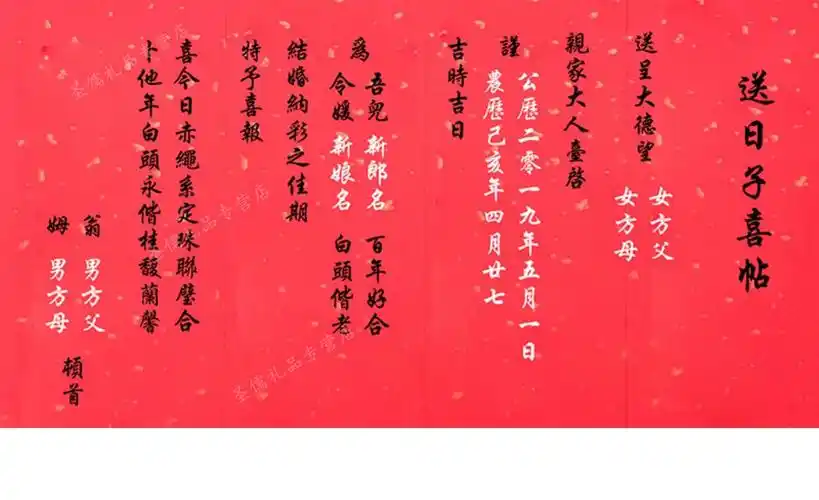 送日子喜帖
送呈大德望
女方父
女方母
親家大人臺啓
謹
公歷二零一九年五月一日
農歷己亥年四月廿七
吉時吉日
爲
吾兒 新郎名 百年好合
令嫒 新娘名 白頭偕老
結婚納彩之佳期
特予喜報
喜今日赤繩系定珠聯璧合
卜他年白頭永偕桂馥蘭馨
翁 男方父
姆 男方母
頓首
圣儒礼品专营店
圣儒礼品专营店
圣儒礼品专营店